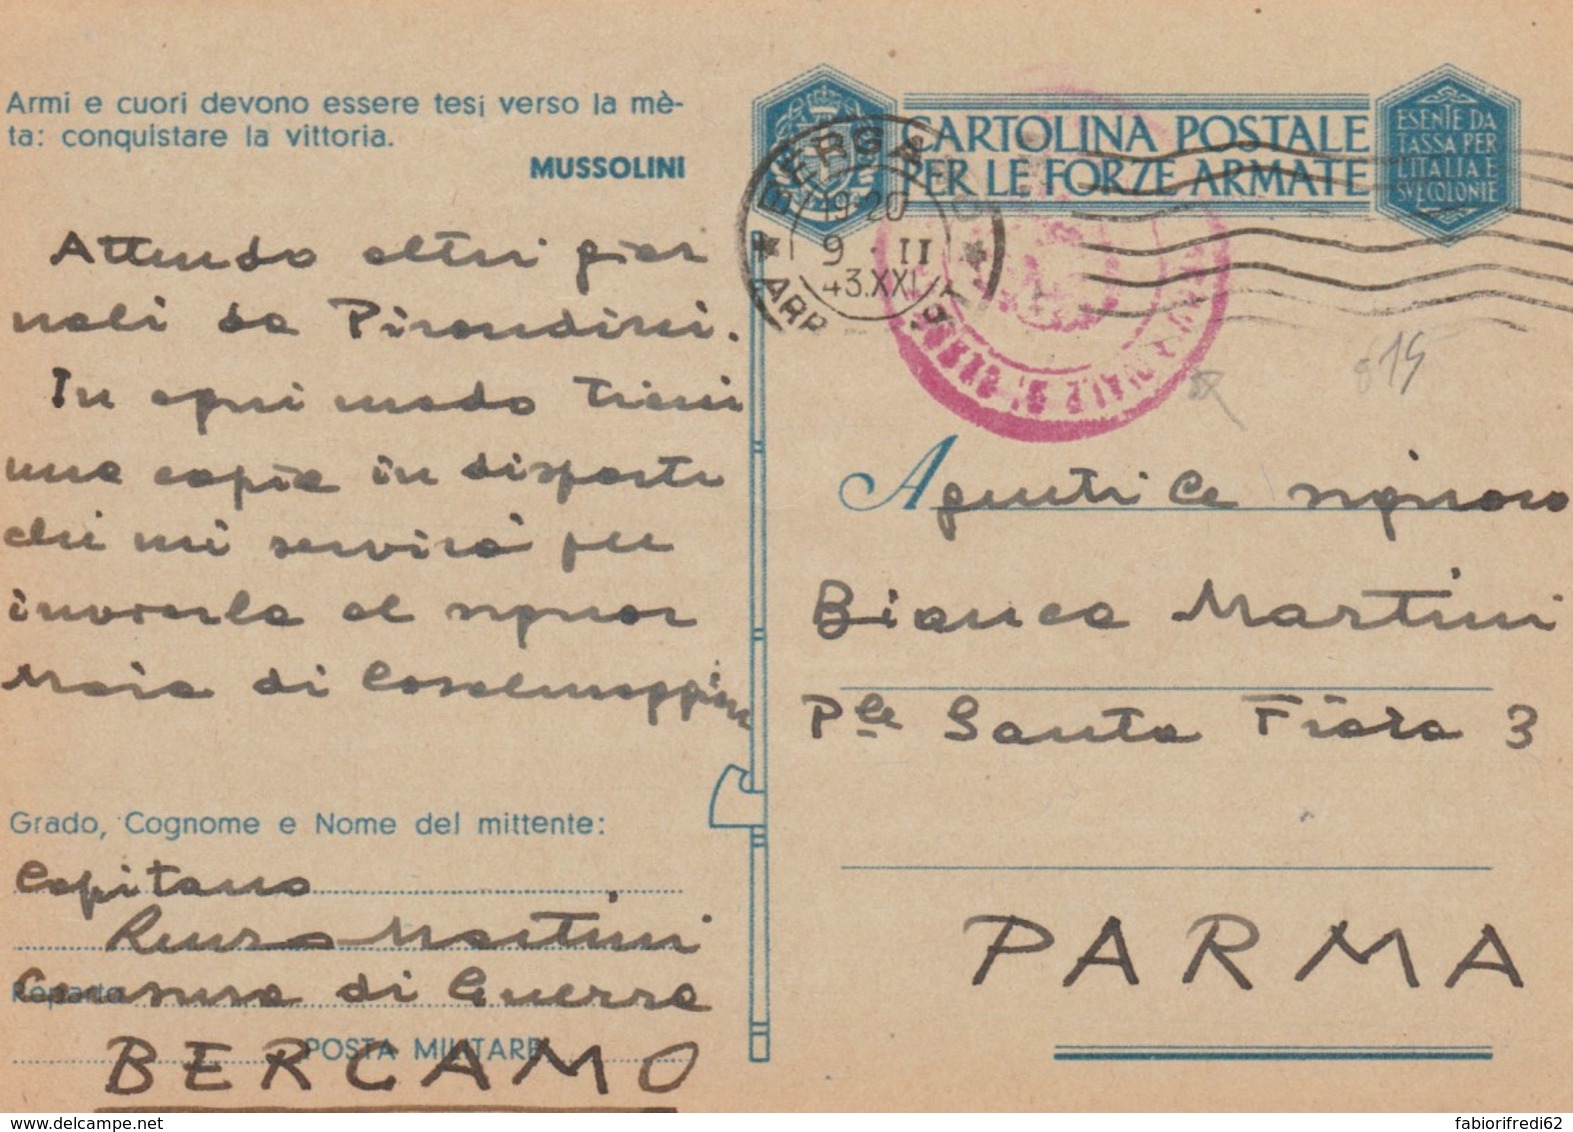 Armi e cuori devono essere tesi verso la mè-
ta: conquistare la vittoria.
MUSSOLINI
Attendo altri gior
nali da Pirondini.
In ogni modo tieni
una copia in disparte
che mi servirà per
inviarla al signor
Maia di Casalmaggiore
Grado, Cognome e Nome del mittente:
Capitano
Renzo Martini
Censura di Guerra
Reparto
POSTA MILITARE
BERGAMO
CARTOLINA POSTALE
PER LE FORZE ARMATE
ESENTE DA
TASSA PER
L'ITALIA E
SVE COLONIE
BERGAMO
19-20
9 - II
43.XXI
ARR
A gentile signora
Bianca Martini
Ple Santa Fiora 3
PARMA
delcampe.net
fabiorifredi62